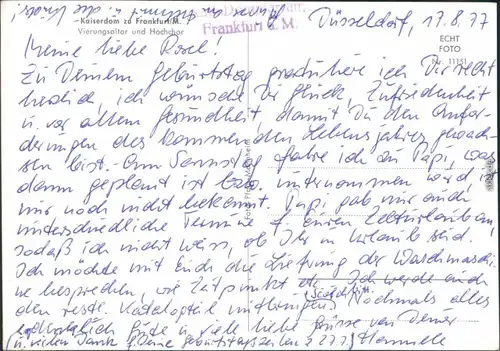 Kaiserdom zu Frankfurt/M.
Vierungsaltar und Hochchor
Frankfurt a. M.
ECHT
FOTO
Nr. 11151
Düsseldorf, 17.8.77
Meine liebe Rosel!
Zu Deinem Geburtstag gratuliere ich Dir recht
herzlich, ich wünsche Dir Glück, Zufriedenheit
u. vor allem Gesundheit, damit Du den Anfor-
derungen des kommenden Lebensjahres gewach-
sen bist. Am Samstag fahre ich zu Papi, was
dann geplant ist bzw. unternommen wird, ist
mir noch nicht bekannt. Papi gab mir auch
unterschiedliche Termine f. Euren Urlaub an,
sodaß ich nicht weiss, ob Ihr in Urlaub seid.
Ich möchte mit Euch die Lieferung der Waschmaschi-
ne besprechen, wie Zeitpunkt etc. Ich werde auch
den restl. Kaufpreis mitbringen. Nochmals alles
Gute u. viele liebe Grüsse von Deiner
(u. vielen Dank f. Deine Geburtstagszeilen z. 27.7.) Hannele